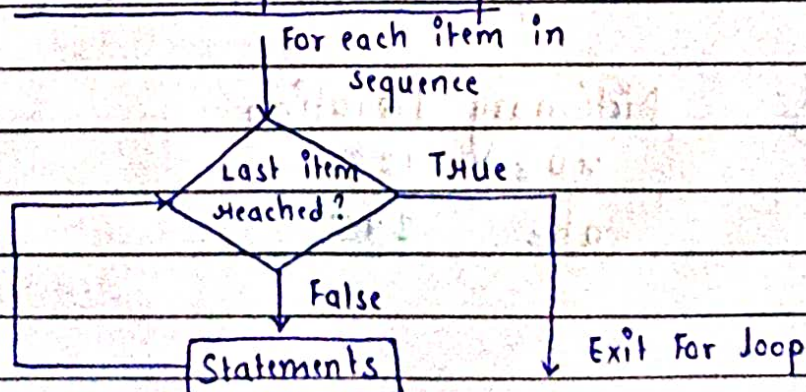 For each item in
sequence
Last item
reached?
True
False
Statements
Exit For loop